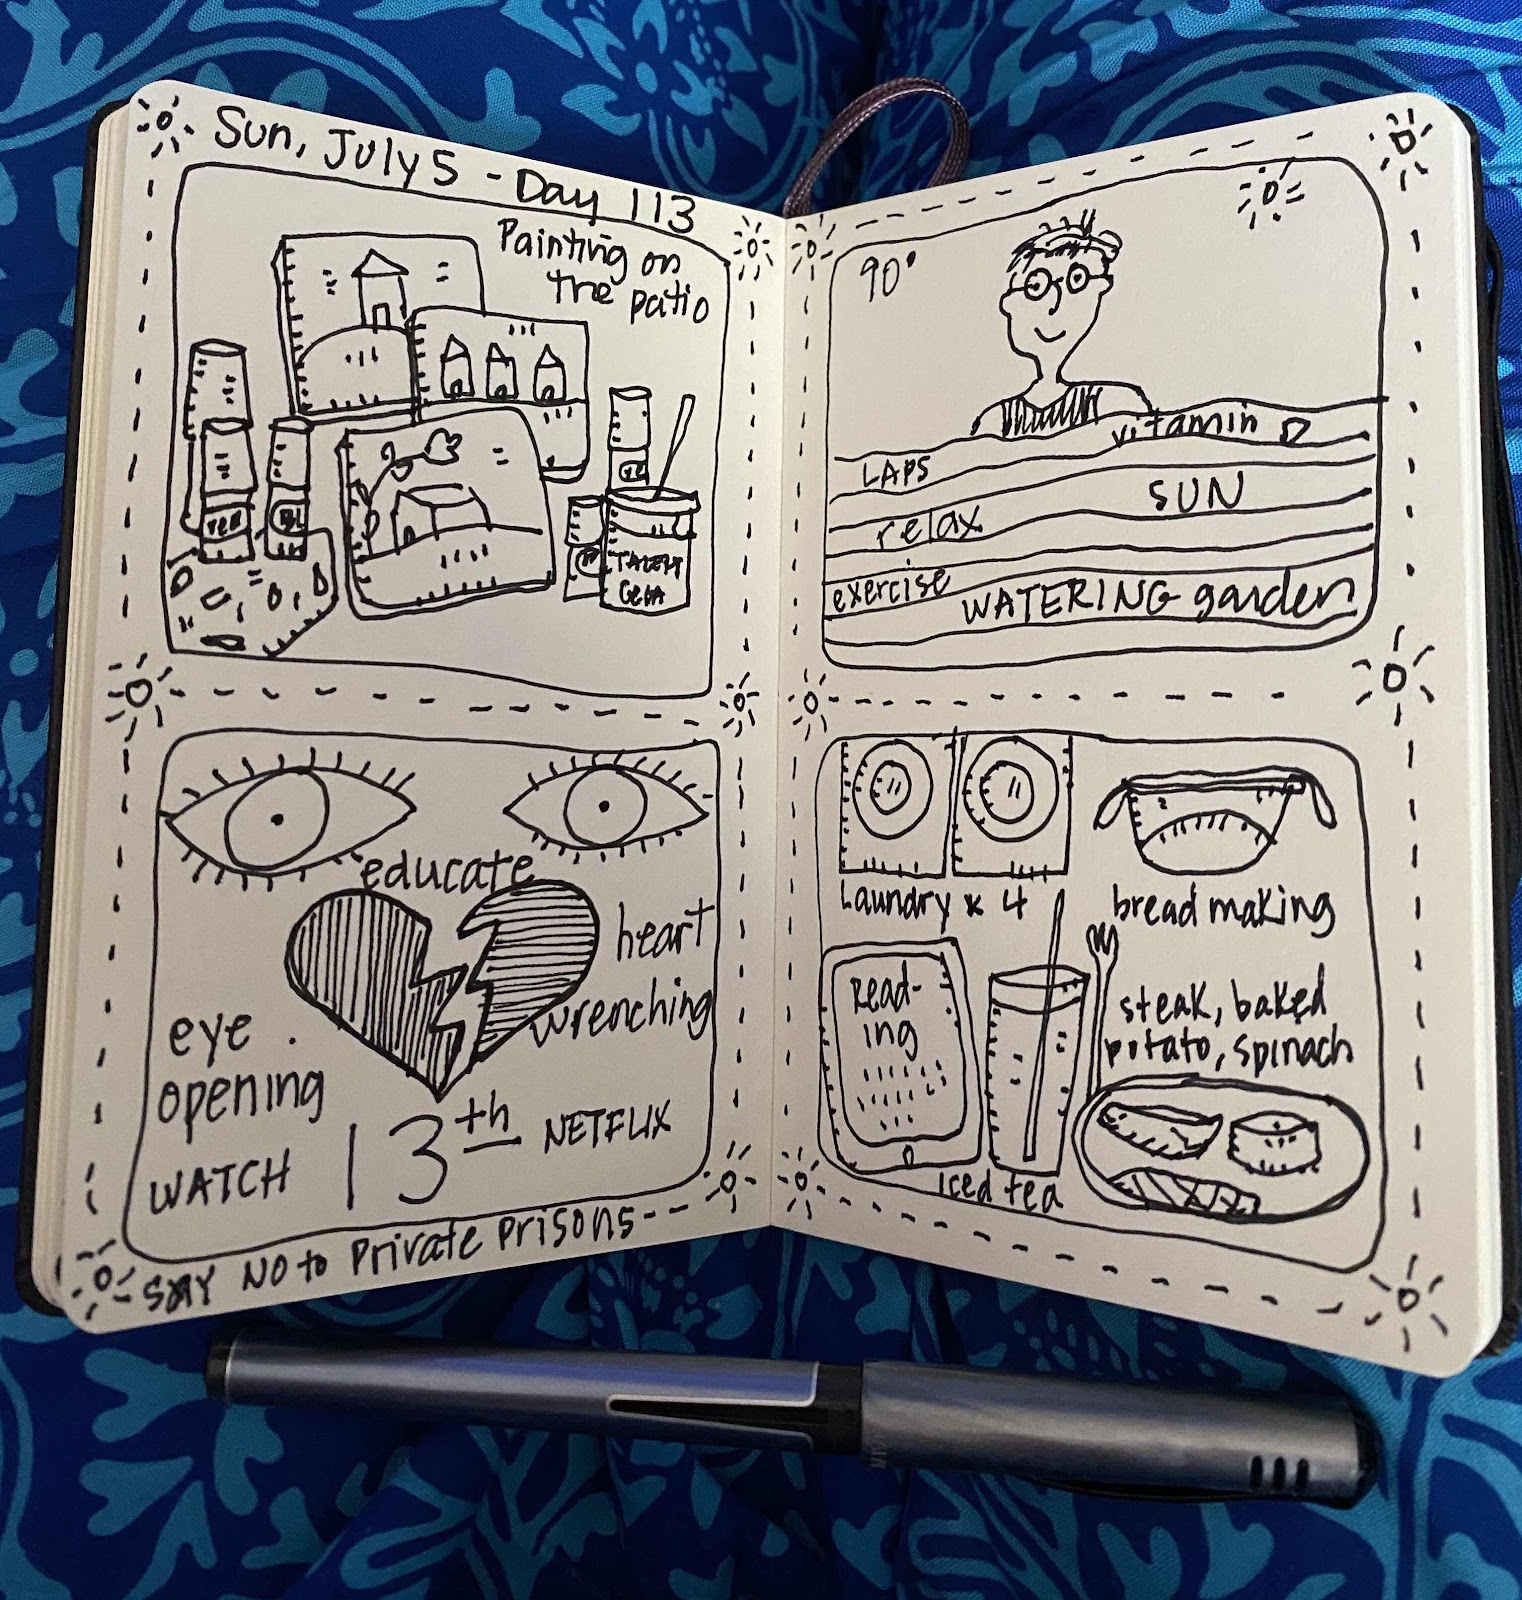 Sun, July 5 - Day 113
Painting on
the patio
educate
heart
wrenching
eye
opening
WATCH 13th NETFLIX
SAY NO to Private Prisons
90°
vitamin D
LAPS
SUN
relax
exercise
WATERING garden
Laundry x 4
bread making
Read-
ing
steak, baked
potato, spinach
iced tea